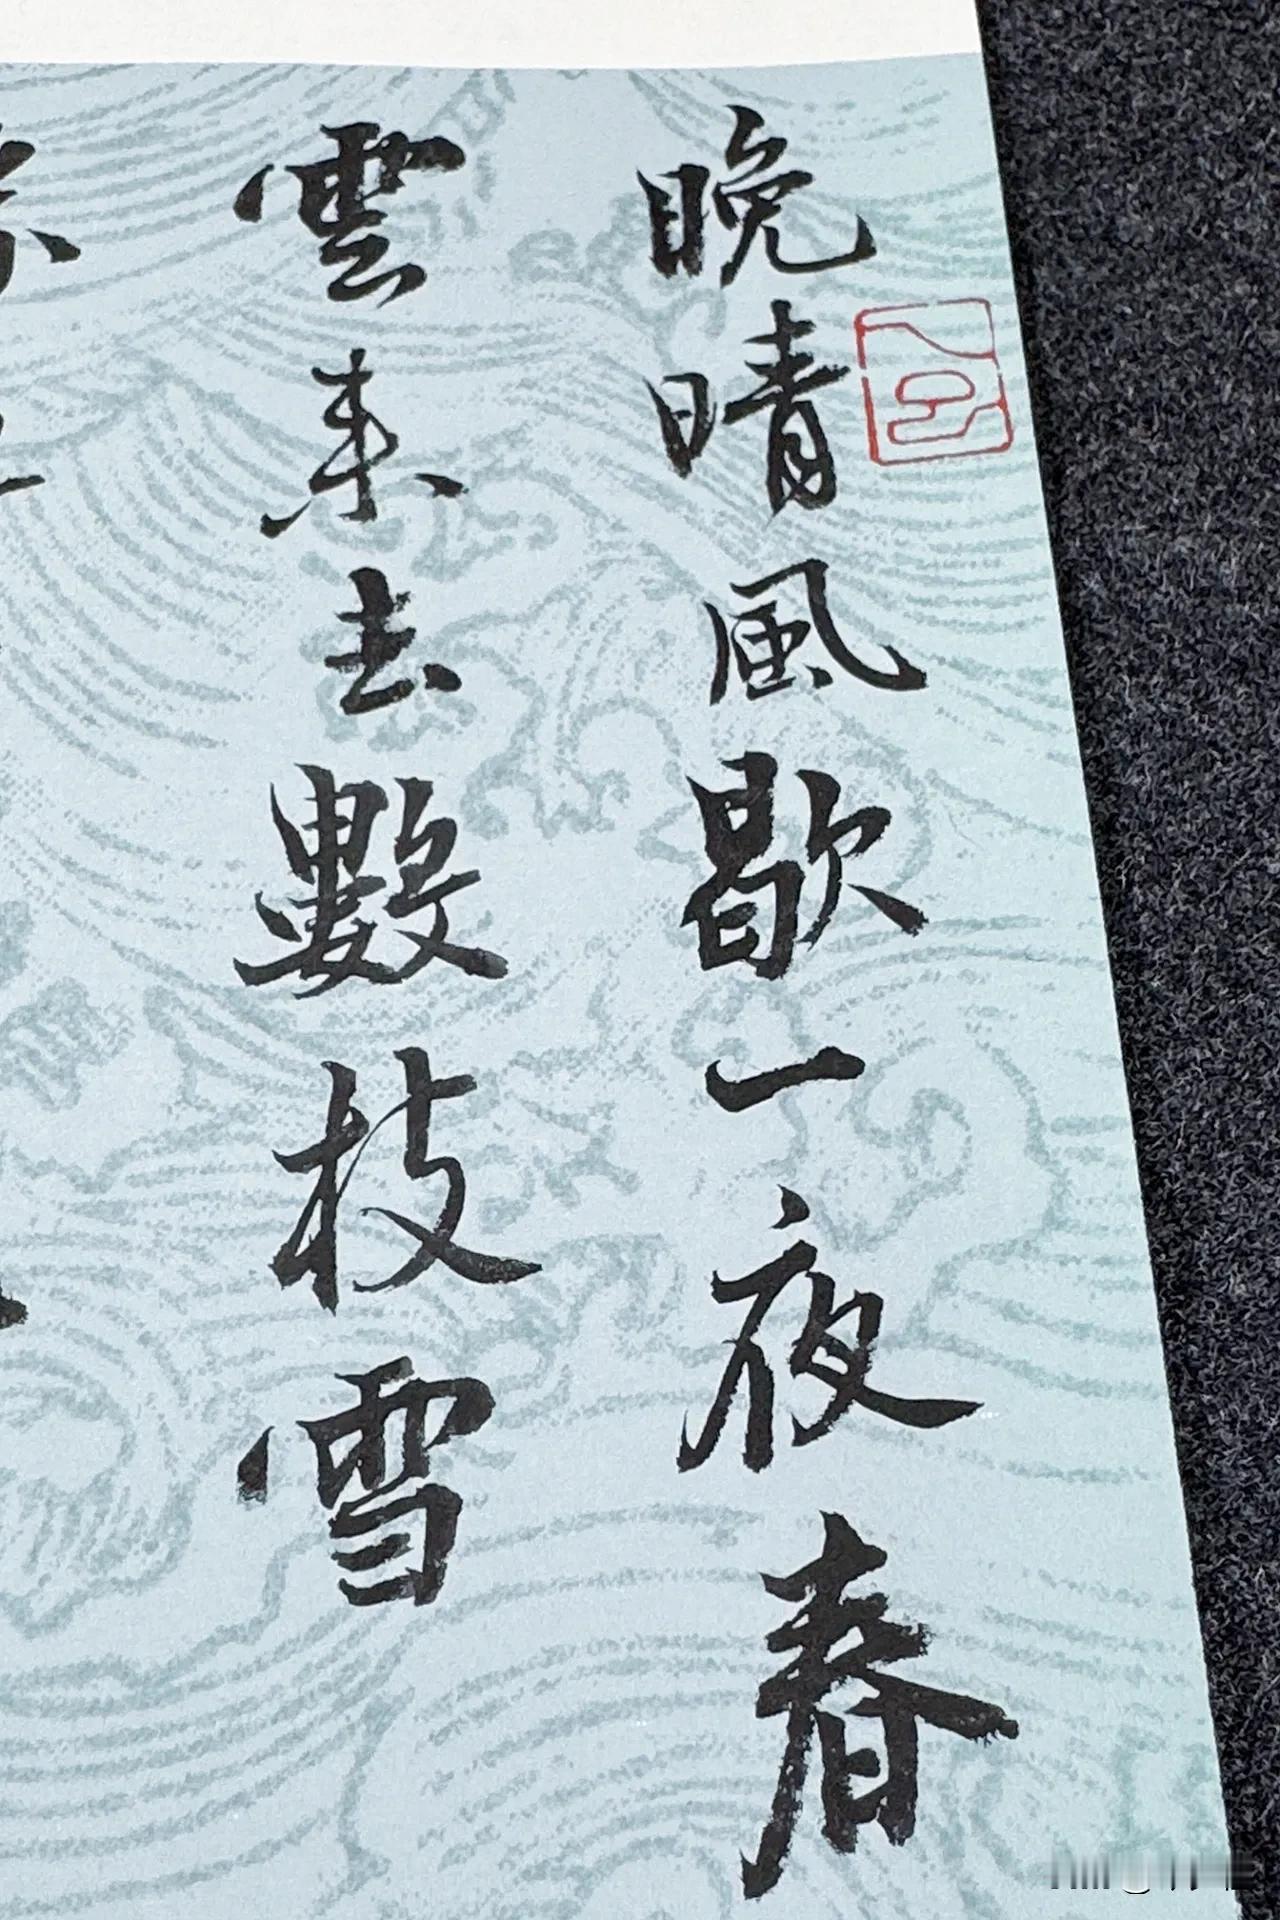 晚晴風歇一夜春
雲來去數枝雪